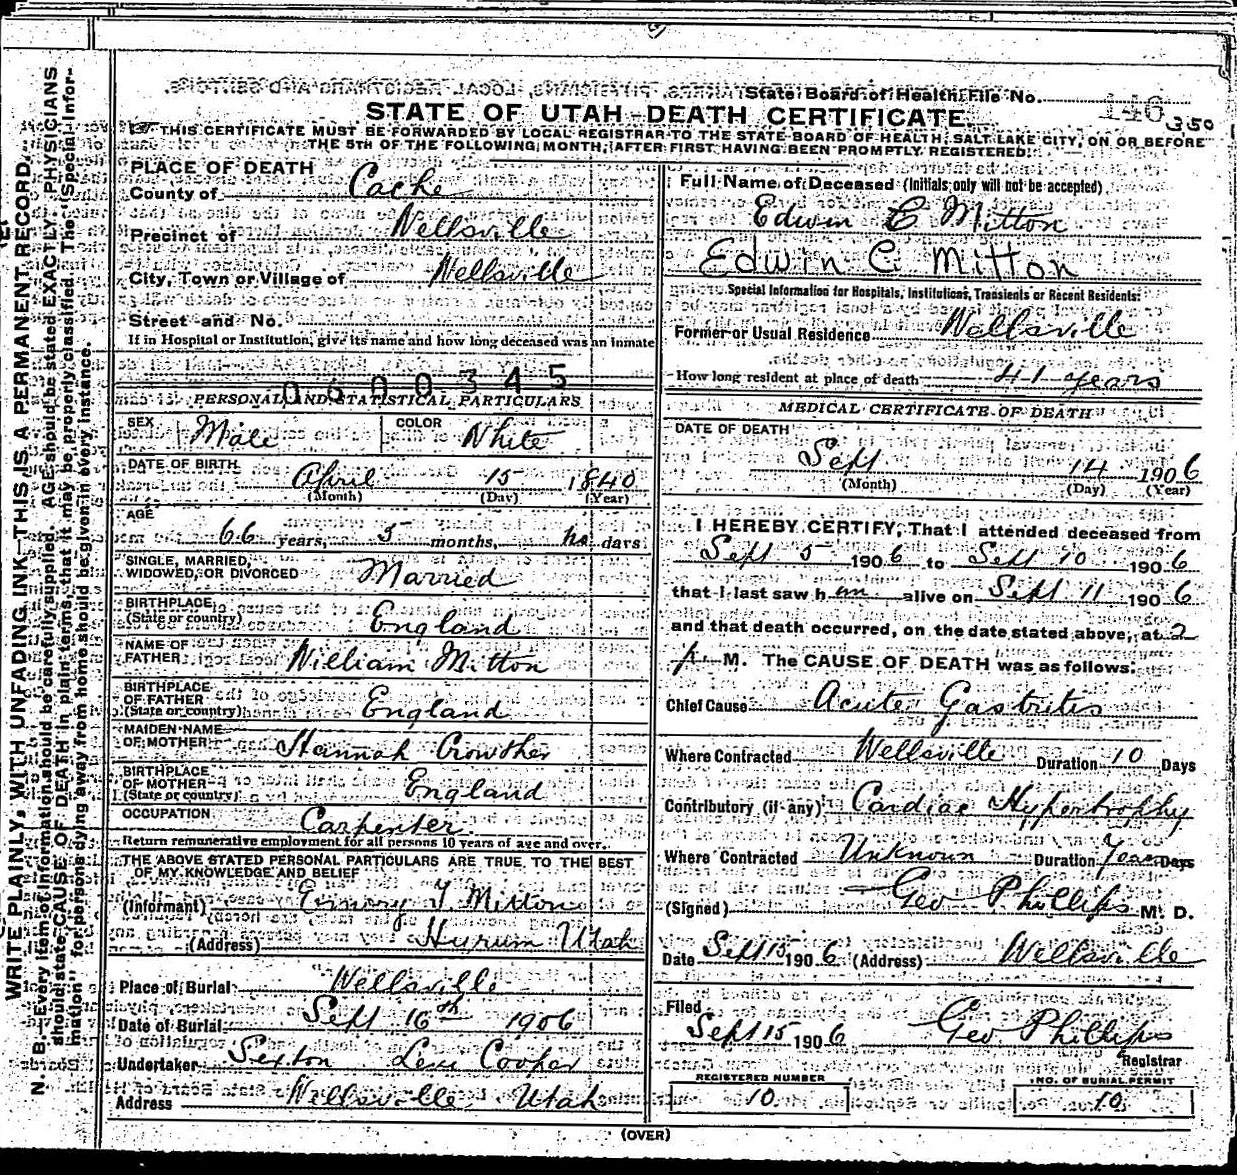 State Board of Health File No. 146
350
STATE OF UTAH-DEATH CERTIFICATE
THIS CERTIFICATE MUST BE FORWARDED BY LOCAL REGISTRAR TO THE STATE BOARD OF HEALTH, SALT LAKE CITY, ON OR BEFORE
THE 5TH OF THE FOLLOWING MONTH, (AFTER FIRST HAVING BEEN PROMPTLY REGISTERED.)
PLACE OF DEATH
County of Cache
Precinct of Wellsville
City, Town or Village of Wellsville
Street and No.
If in Hospital or Institution, give its name and how long deceased was an inmate
0600345
PERSONAL AND STATISTICAL PARTICULARS
SEX Male COLOR White
DATE OF BIRTH April 15 1840
(Month) (Day) (Year)
AGE
66 years, 5 months, no days
SINGLE, MARRIED,
WIDOWED, OR DIVORCED Married
BIRTHPLACE
(State or country) England
NAME OF
FATHER William Mitton
BIRTHPLACE
OF FATHER
(State or country) England
MAIDEN NAME
OF MOTHER Hannah Crowther
BIRTHPLACE
OF MOTHER
(State or country) England
OCCUPATION Carpenter
Return remunerative employment for all persons 10 years of age and over.
THE ABOVE STATED PERSONAL PARTICULARS ARE TRUE TO THE BEST
OF MY KNOWLEDGE AND BELIEF
(Informant) Emory T Mitton
(Address) Hyrum Utah
Place of Burial Wellsville
Date of Burial Sept 16th 1906
Undertaker Sexton Levi Cooper
Address Wellsville Utah
Full Name of Deceased (Initials only will not be accepted)
Edwin C Mitton
Edwin C Mitton
Special Information for Hospitals, Institutions, Transients or Recent Residents:
Former or Usual Residence Wellsville
How long resident at place of death 41 years
MEDICAL CERTIFICATE OF DEATH
DATE OF DEATH
Sept 14 1906
(Month) (Day) (Year)
I HEREBY CERTIFY, That I attended deceased from
Sept 5 1906 to Sept 10 1906
that I last saw him alive on Sept 11 1906
and that death occurred, on the date stated above, at 2
p M. The CAUSE OF DEATH was as follows:
Chief Cause Acute Gastritis
Where Contracted Wellsville Duration 10 Days
Contributory (if any) Cardiac Hypertrophy
Where Contracted Unknown Duration Years Days
(Signed) Geo Phillips M. D.
Date Sept 15 1906 (Address) Wellsville
Filed
Sept 15 1906 Geo. Phillips
Registrar
REGISTERED NUMBER
10
NO. OF BURIAL PERMIT
10
(OVER)
WRITE PLAINLY, WITH UNFADING INK—THIS IS A PERMANENT RECORD.
N. B. Every item of information should be carefully supplied. AGE should be stated EXACTLY. PHYSICIANS
should state CAUSE OF DEATH in plain terms, that it may be properly classified. The "Special Infor-
mation" for persons dying away from home should be given in every instance.